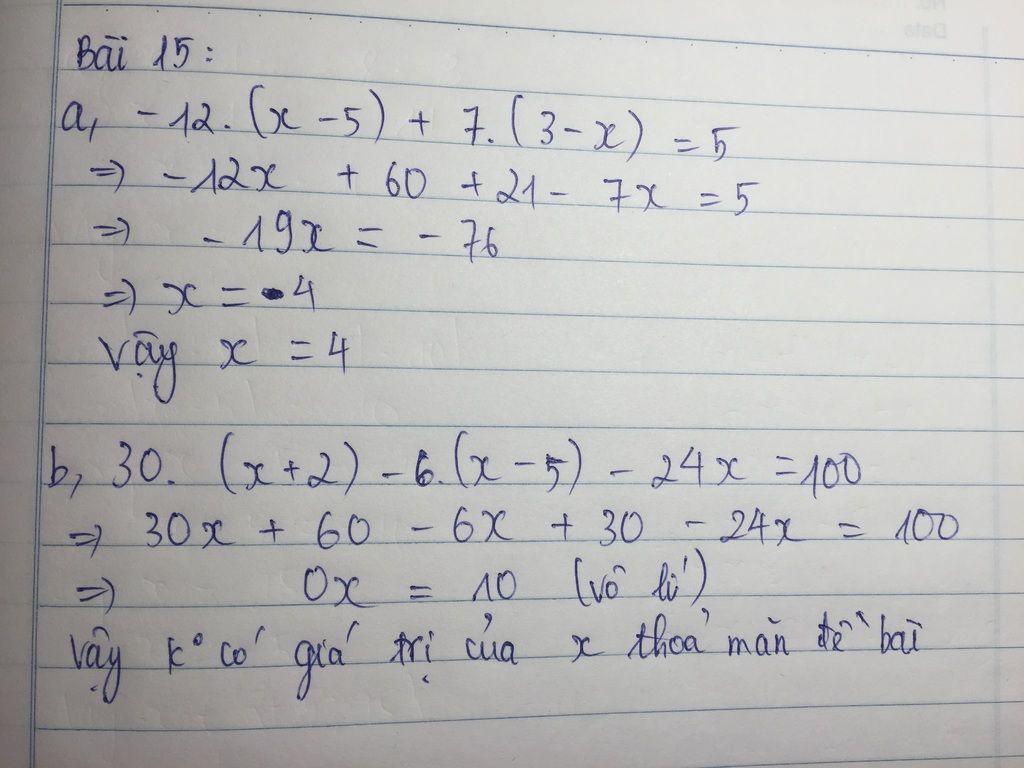 Bài 15:
a, -12. (x - 5) + 7. (3 - x) = 5
=> -12x + 60 + 21 - 7x = 5
=> -19x = -76
=> x = 4
Vậy x = 4
b, 30. (x + 2) - 6. (x - 5) - 24x = 100
=> 30x + 60 - 6x + 30 - 24x = 100
=> 0x = 10 (vô lí)
Vậy k° có giá trị của x thoả mãn đề bài